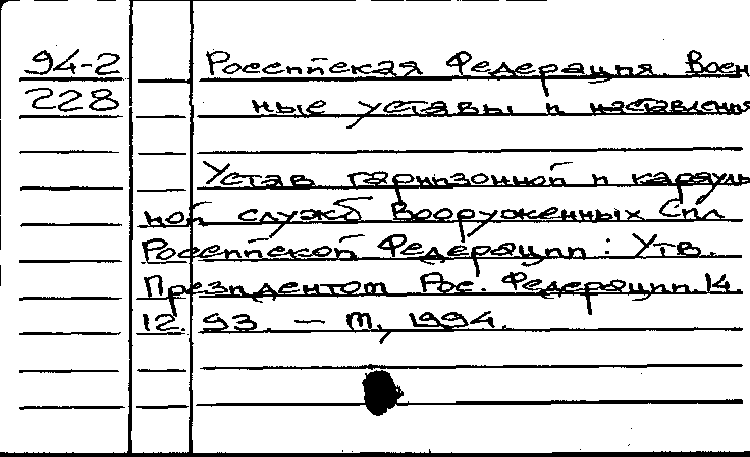 94-2 Российская Федерация. Воен
228 ные уставы и наставления
Устав гарнизонной и карауль
ной служб Вооруженных Сил
Российской Федерации: Утв.
Президентом Рос. Федерации.14.
12. 93. — М, 1994.